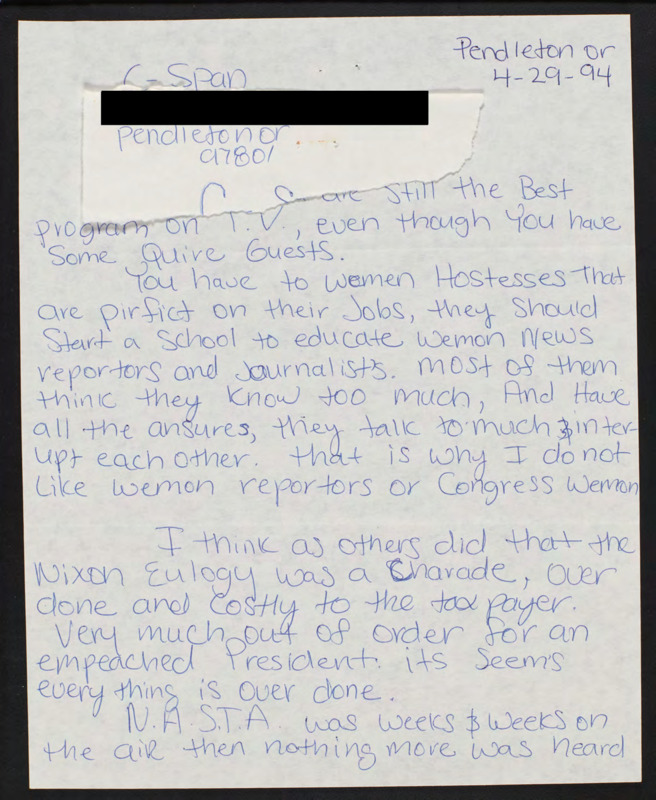 Pendleton or
4-29-94
C-Span
Pendleton or
97801
C S are still the Best
program on T.V., even though You have
Some Quire Guests.
You have to women Hostesses That
are pirfict on their Jobs, they Should
Start a School to educate wemon News
reportors and Journalists. most of them
think they Know too much, And Have
all the ansures, they talk to much & inter-
upt each other. that is why I do not
Like wemon reportors or Congress Wemon
I think as others did that the
Nixon Eulogy was a Charade, over
done and Costly to the tax payer.
Very much out of order for an
empeached President. its Seems
every thing is over done.
N.A.S.T.A. was weeks & weeks on
the air then nothing more was heard